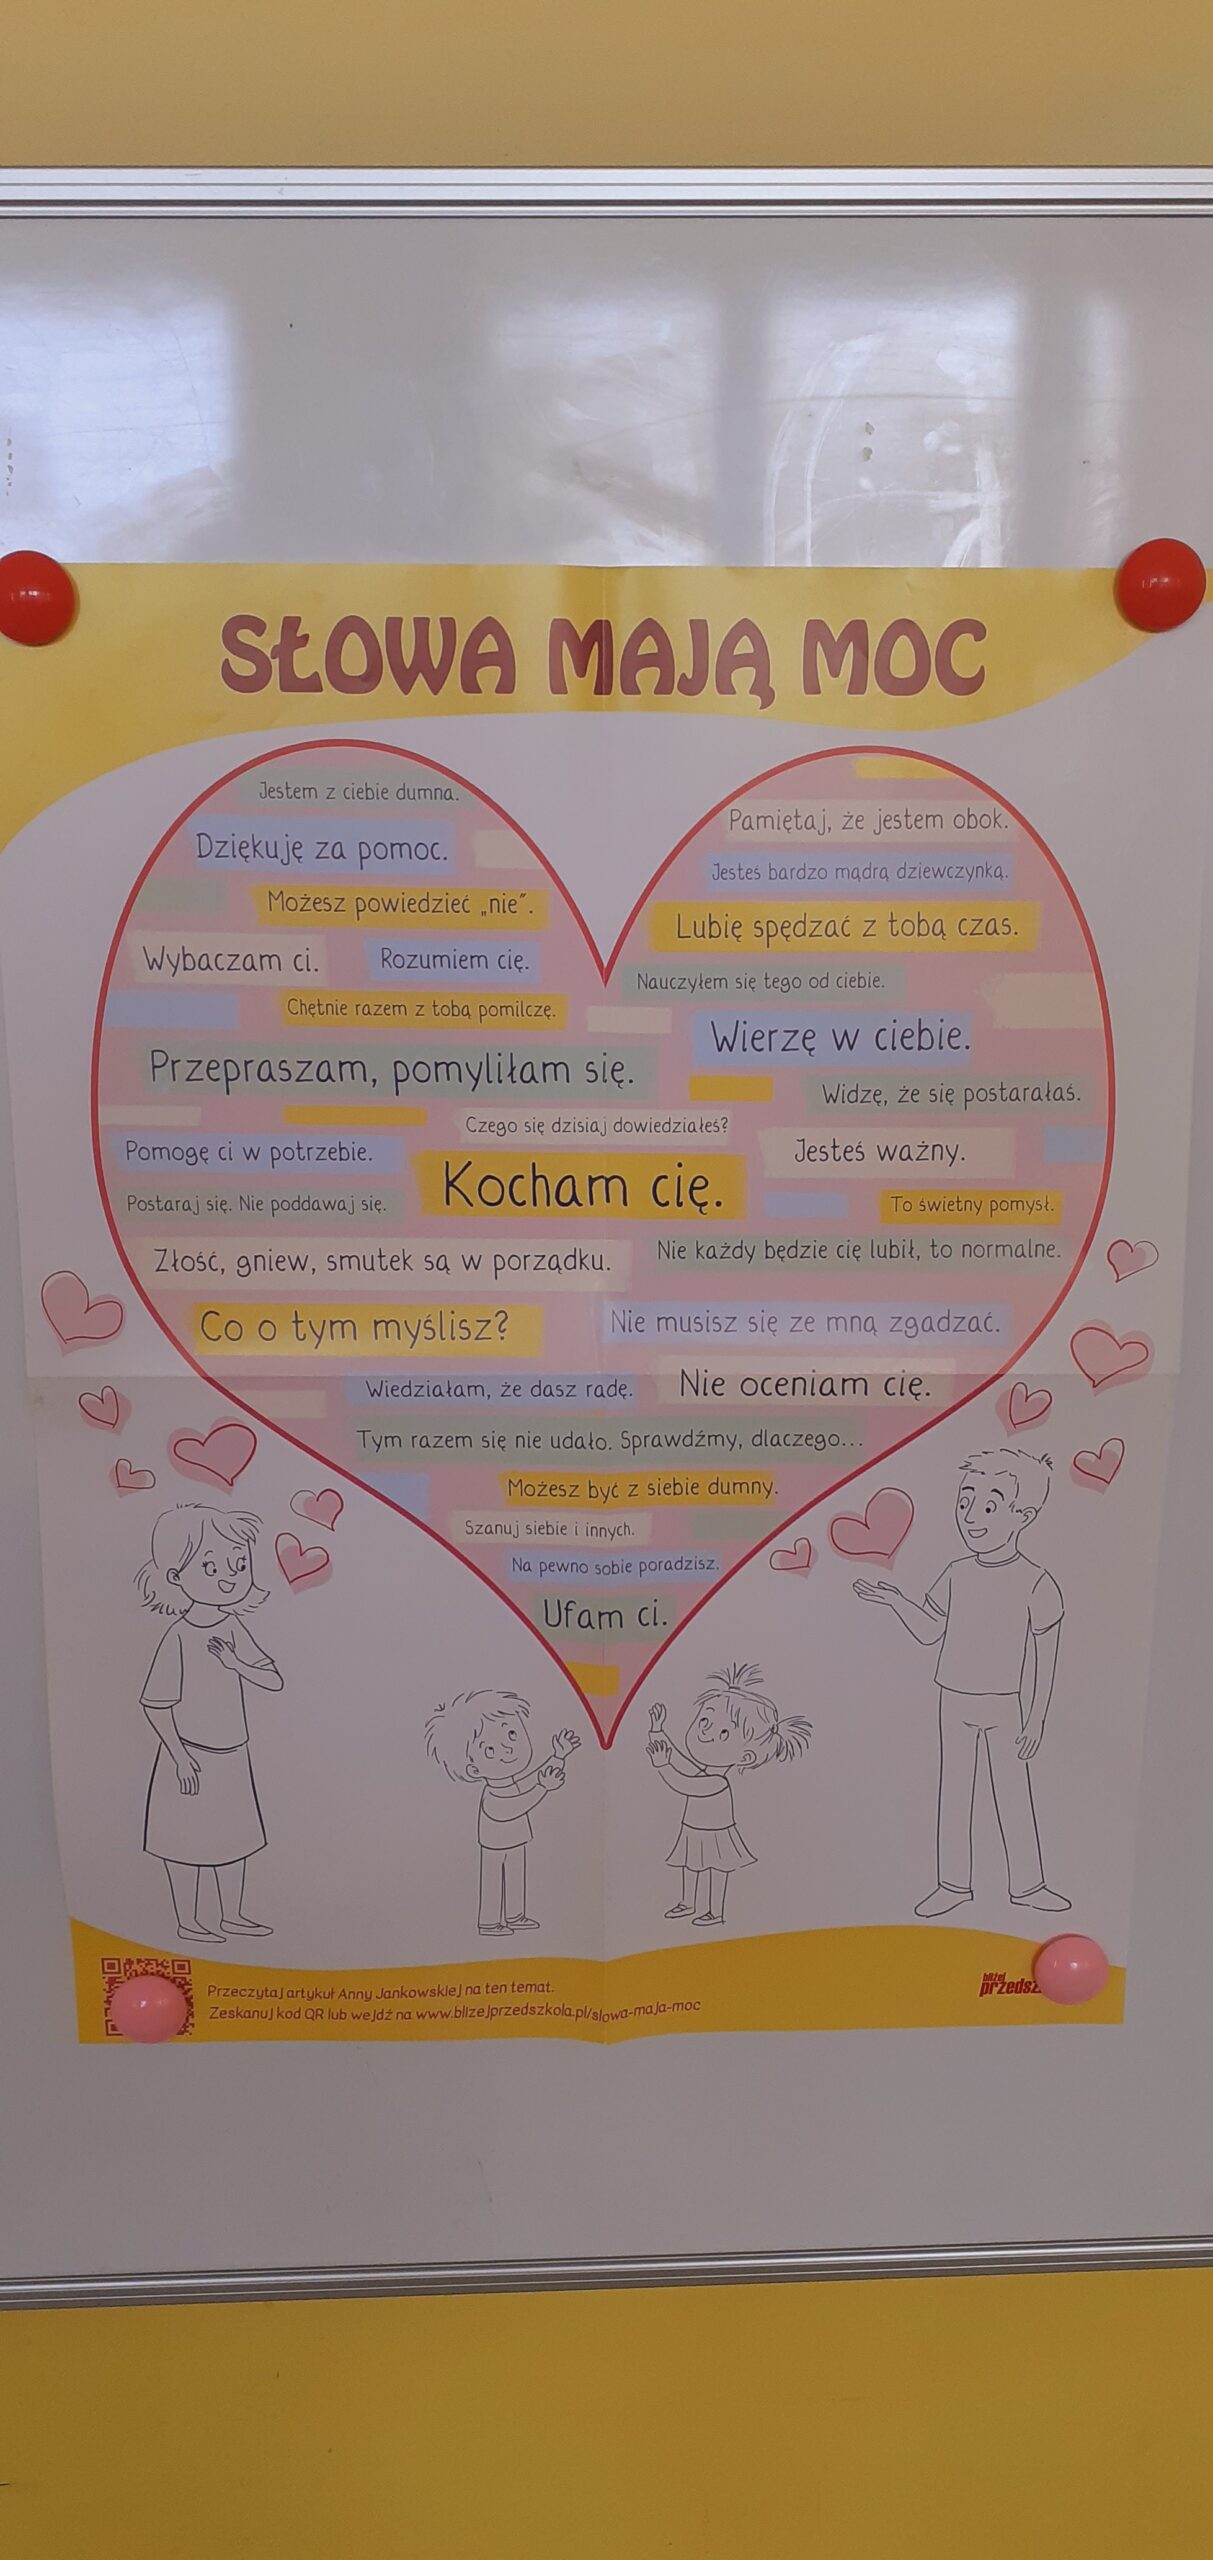 SŁOWA MAJĄ MOC
Jestem z ciebie dumna.
Dziękuję za pomoc.
Możesz powiedzieć „nie”.
Wybaczam ci.
Rozumiem cię.
Chętnie razem z tobą pomilczę.
Przepraszam, pomyliłam się.
Pamiętaj, że jestem obok.
Jesteś bardzo mądrą dziewczynką.
Lubię spędzać z tobą czas.
Nauczyłem się tego od ciebie.
Wierzę w ciebie.
Widzę, że się postarałaś.
Czego się dzisiaj dowiedziałeś?
Pomogę ci w potrzebie.
Kocham cię.
Jesteś ważny.
Postaraj się. Nie poddawaj się.
To świetny pomysł.
Złość, gniew, smutek są w porządku.
Nie każdy będzie cię lubił, to normalne.
Co o tym myślisz?
Nie musisz się ze mną zgadzać.
Wiedziałam, że dasz radę.
Nie oceniam cię.
Tym razem się nie udało. Sprawdźmy, dlaczego...
Możesz być z siebie dumny.
Szanuj siebie i innych.
Na pewno sobie poradzisz.
Ufam ci.
Przeczytaj artykuł Anny Jankowskiej na ten temat.
Zeskanuj kod QR lub wejdź na www.blizejprzedszkola.pl/slowa-maja-moc
bliżej